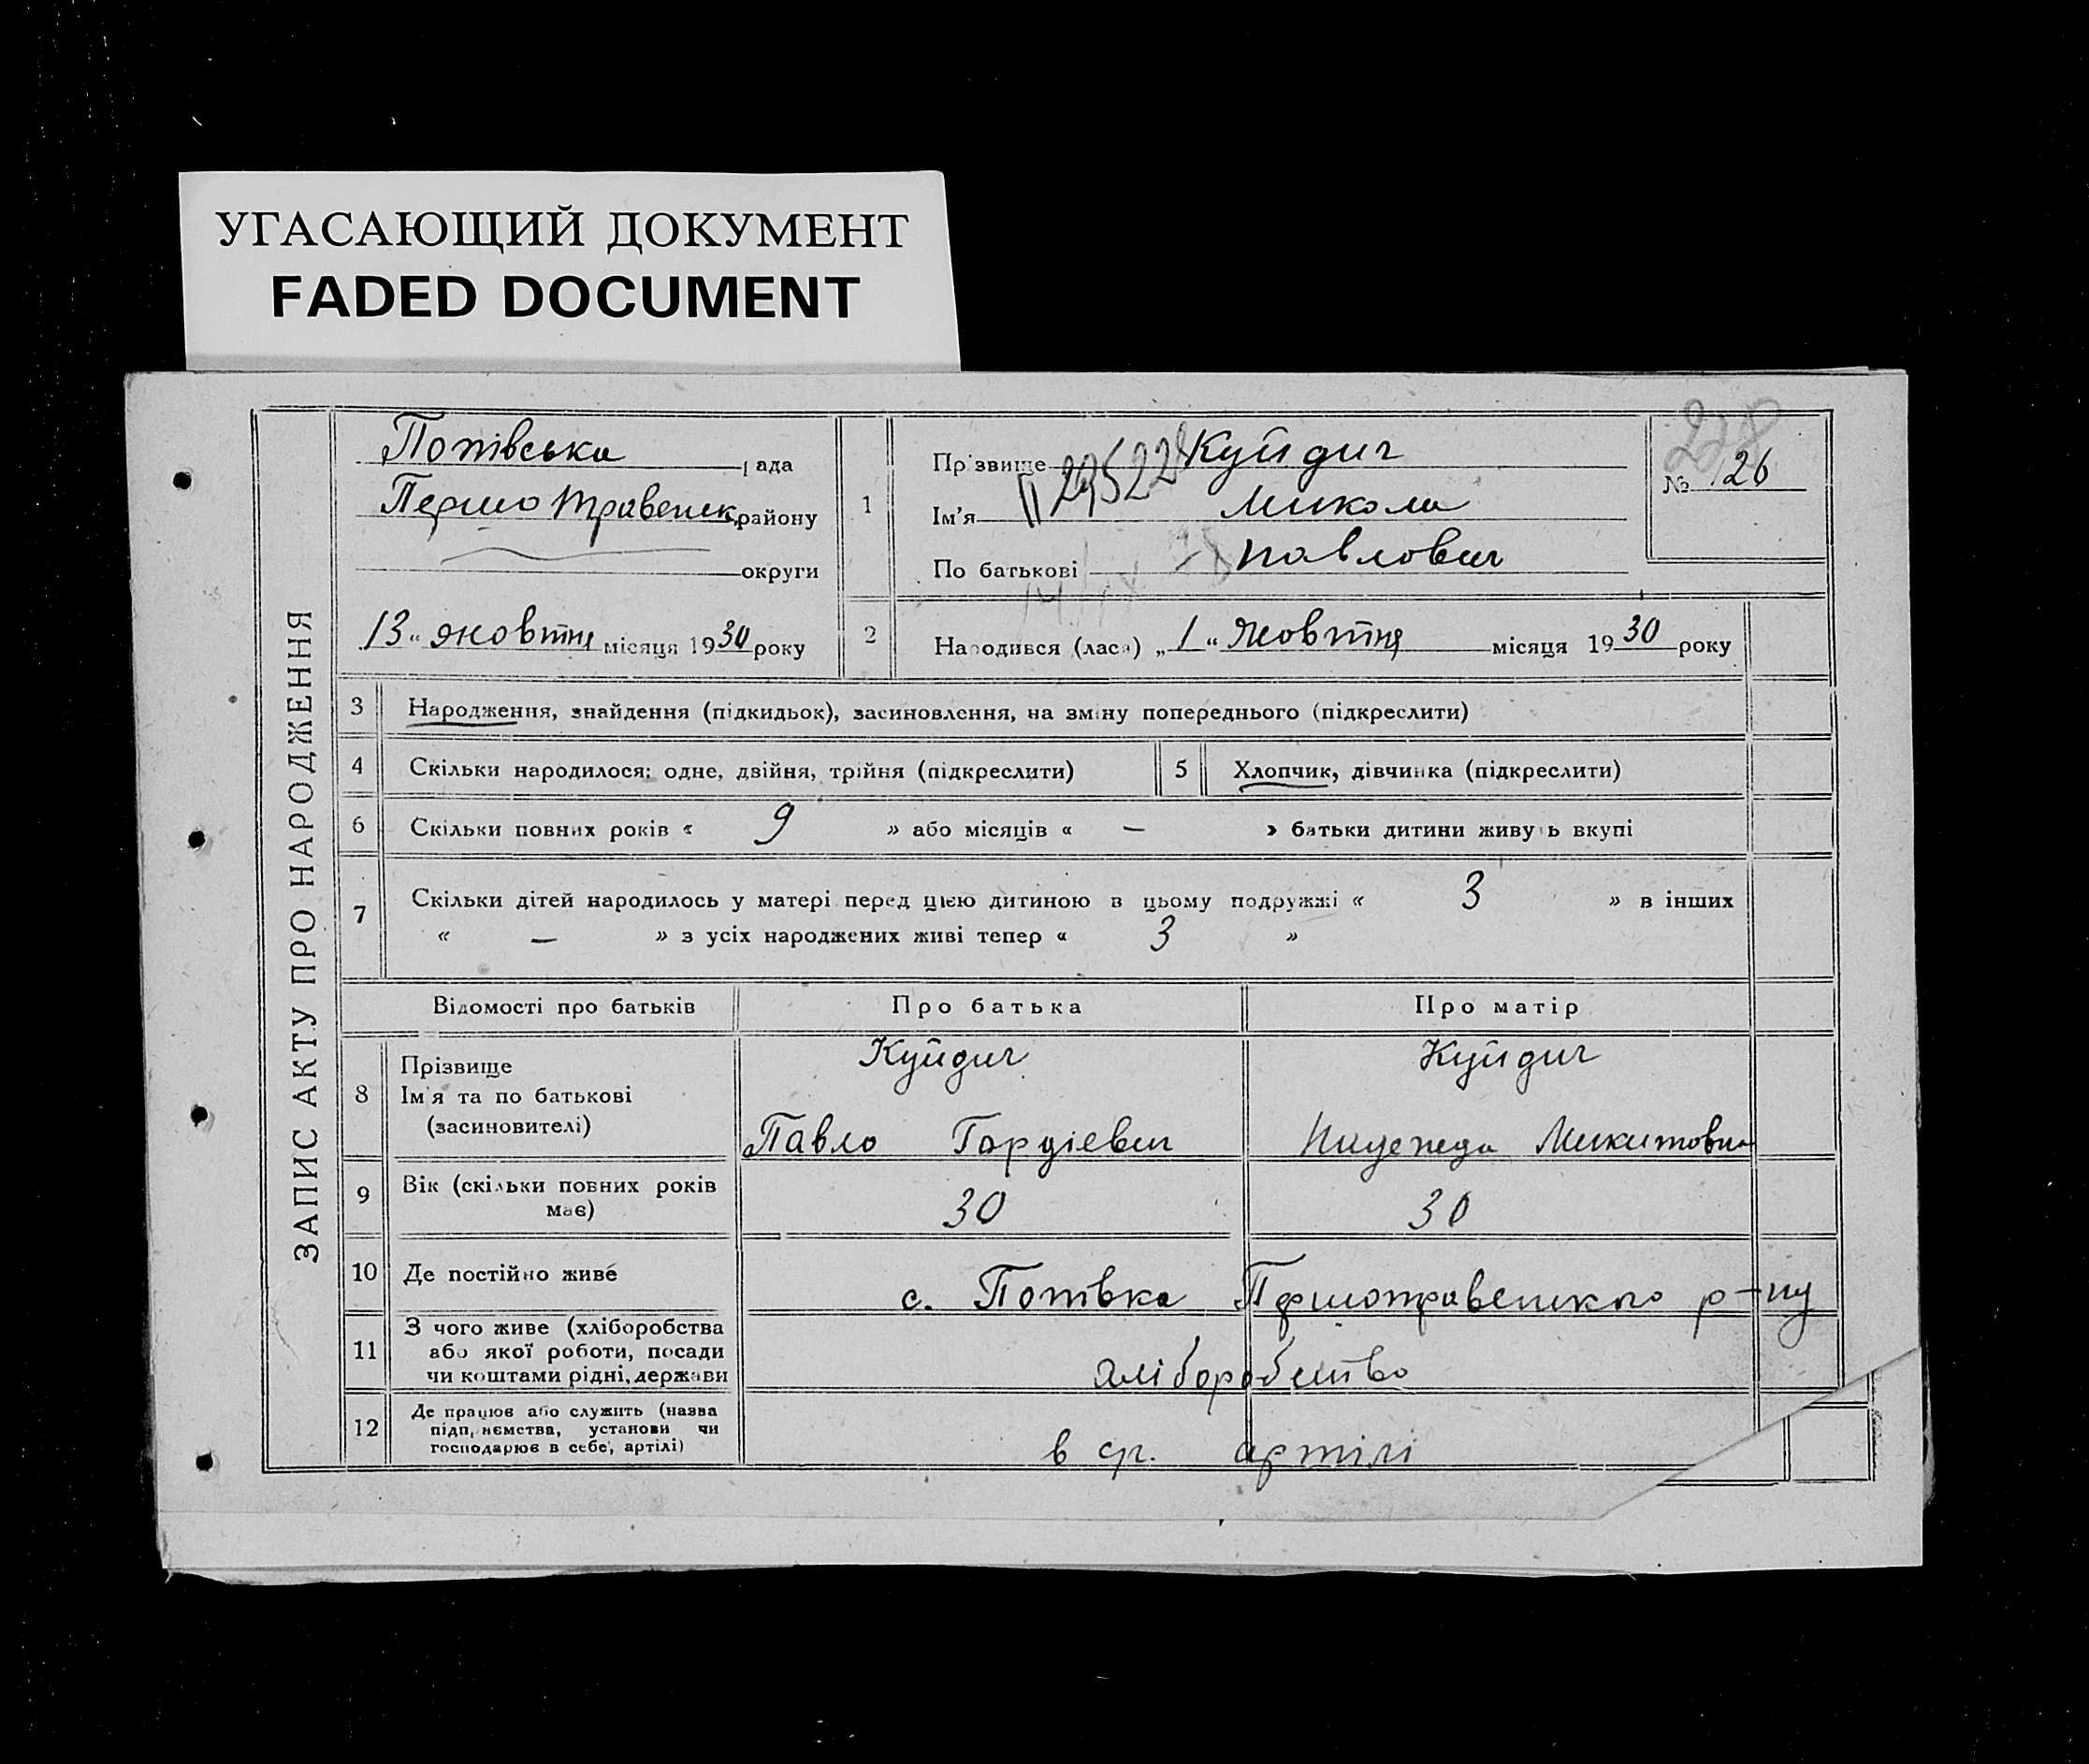 УГАСАЮЩИЙ ДОКУМЕНТ
FADED DOCUMENT
ЗАПИС АКТУ ПРО НАРОДЖЕННЯ
Попівська рада
Першотравенськ. району
округи
13 " жовтня місяця 1930 року
1
Прізвище Куйдич
Ім'я Микола
По батькові Павлович
№ 26
228
2
Народився (лася) „ 1 " Жовтня місяця 19 30 року
3 Народження, знайдення (підкидьок), засиновлення, на зміну попереднього (підкреслити)
4 Скільки народилося: одне, двійня, трійня (підкреслити)
5 Хлопчик, дівчинка (підкреслити)
6 Скільки повних років « 9 » або місяців « — » батьки дитини живуть вкупі
7 Скільки дітей народилось у матері перед цією дитиною в цьому подружжі « 3 » в інших
« — » з усіх народжених живі тепер « 3 »
Відомості про батьків Про батька Про матір
8 Прізвище Куйдич Куйдич
Ім'я та по батькові
(засиновителі) Павло Гордієвич Микитовна
9 Вік (скільки повних років
має) 30 30
10 Де постійно живе с. Попівка Першотравенського р-ну
11 З чого живе (хліборобства
або якої роботи, посади
чи коштами рідні, держави хліборобство
12 Де працює або служить (назва
підприємства, установи чи
господарює в себе, артілі) в артілі